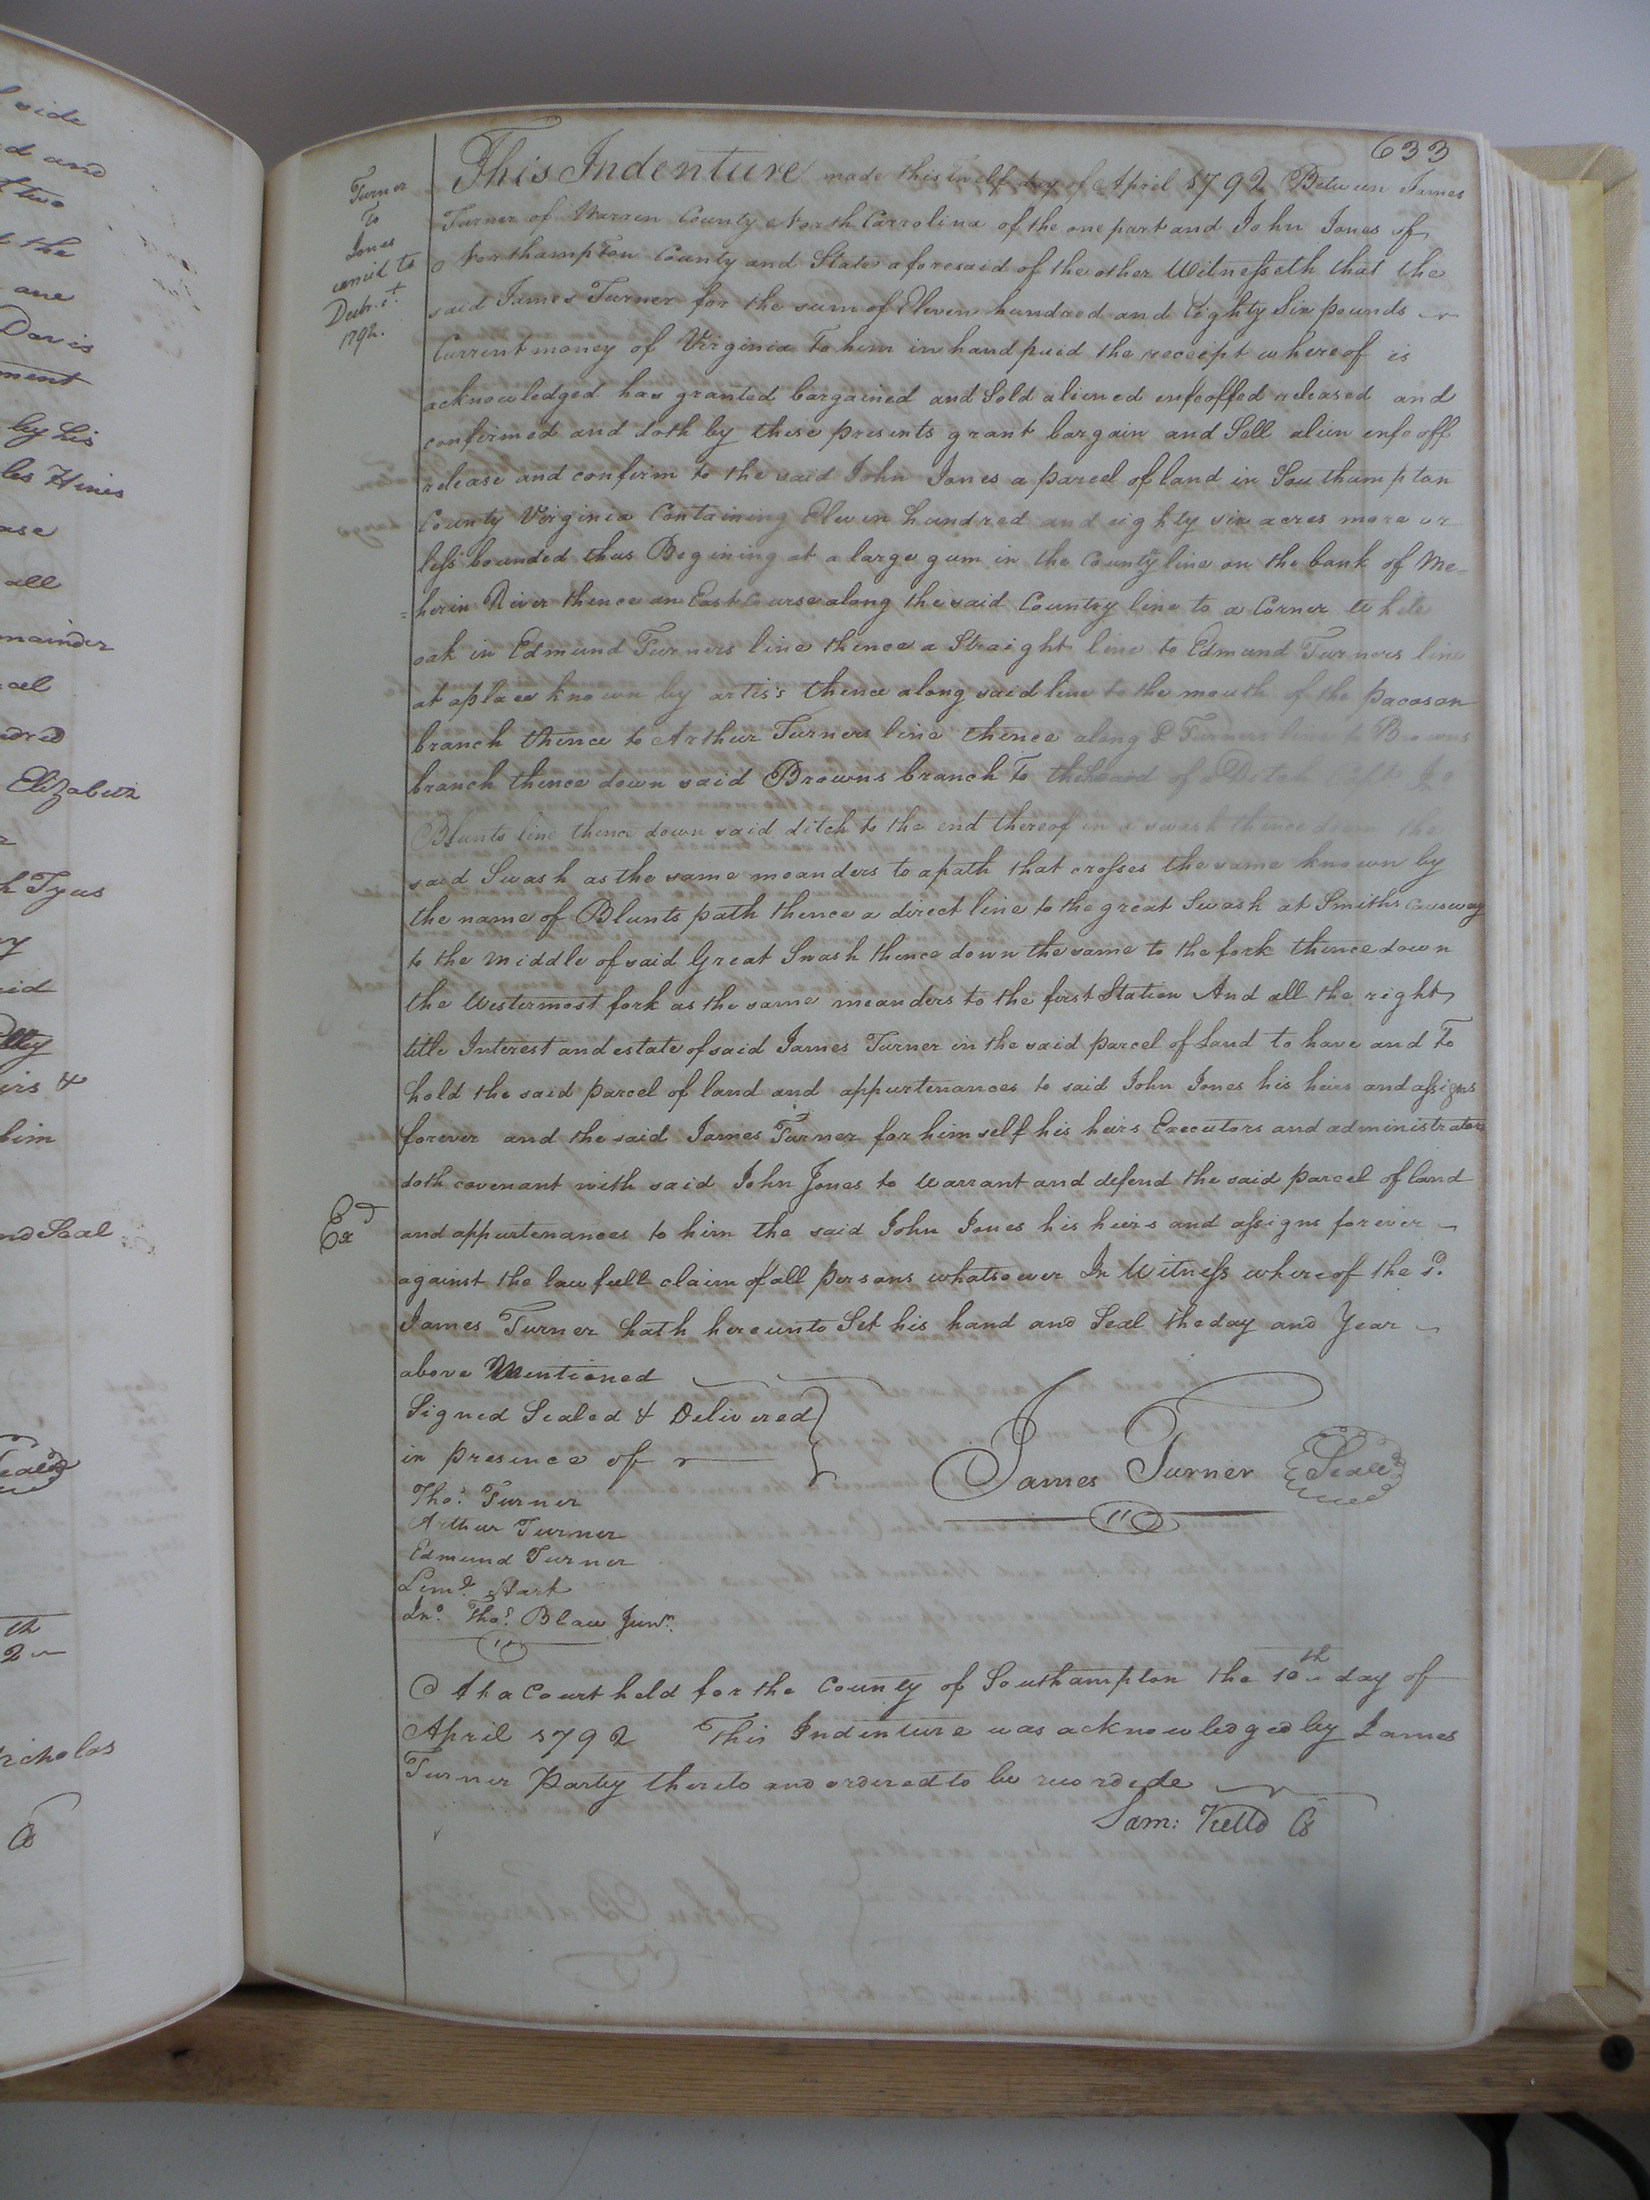 side
d and
two
t the
are
Davis
ment
by his
les Hines
ase
all
mainder
cel
ndred
Elizabeth
h Tyus
y
id
irs &
him
nd Seal
Seal
th
2
icholas
633
Turner
To
Jones
Decbr. 1st.
1792.
This Indenture made this twelf day of April 1792 Between James
Turner of Warren County North Carrolina of the one part and John Jones of
Northampton County and State aforesaid of the other Witnesseth that the
said James Turner for the sum of Eleven hundred and Eighty Six pounds
Current money of Virginia to him in hand paid the receipt whereof is
acknowledged has granted bargained and Sold aliened enfeoffed released and
confirmed and doth by these presents grant bargain and Sell alien enfeoff
release and confirm to the said John Jones a parcel of land in Southampton
County Virginia Containing Eleven hundred and eighty six acres more or
less bounded thus Begining at a large gum in the County line on the bank of Me-
=herin River thence an East Course along the said Country line to a Corner White
oak in Edmund Turners line thence a Straight line to Edmund Turners line
at a place known by artis's thence along said line to the mouth of the pacoson
branch thence to Arthur Turners line thence along Turners line to Browns
branch thence down said Browns branch To the head of a Ditch Jno
Blunts line thence down said ditch to the end thereof in a swash thence down the
said Swash as the same meanders to a path that crosses the same known by
the name of Blunts path thence a direct line to the great Swash at Smiths Causway
to the middle of said Great Swash thence down the same to the fork thence down
the Westermost fork as the same meanders to the first Station And all the right
title Interest and estate of said James Turner in the said parcel of Land to have and To
hold the said parcel of land and appurtenances to said John Jones his heirs and assigns
forever and the said James Turner for himself his heirs Executors and administrators
doth covenant with said John Jones to Warrant and defend the said parcel of land
Exd
and appurtenances to him the said John Jones his heirs and assigns forever
against the lawfull claim of all persons whatsoever In Witness whereof the sd.
James Turner hath hereunto Set his hand and Seal the day and Year
above Mentioned
Signed Sealed & Delivered
in presence of
James Turner Seal
Thos. Turner
Arthur Turner
Edmund Turner
Lemd. Hart
Jno. Thos. Blow Junr.
At a Court held for the County of Southampton the 10th day of
April 1792 This Indenture was acknowledged by James
Turner Party thereto and ordered to be recordede
Sam: Kello Cs